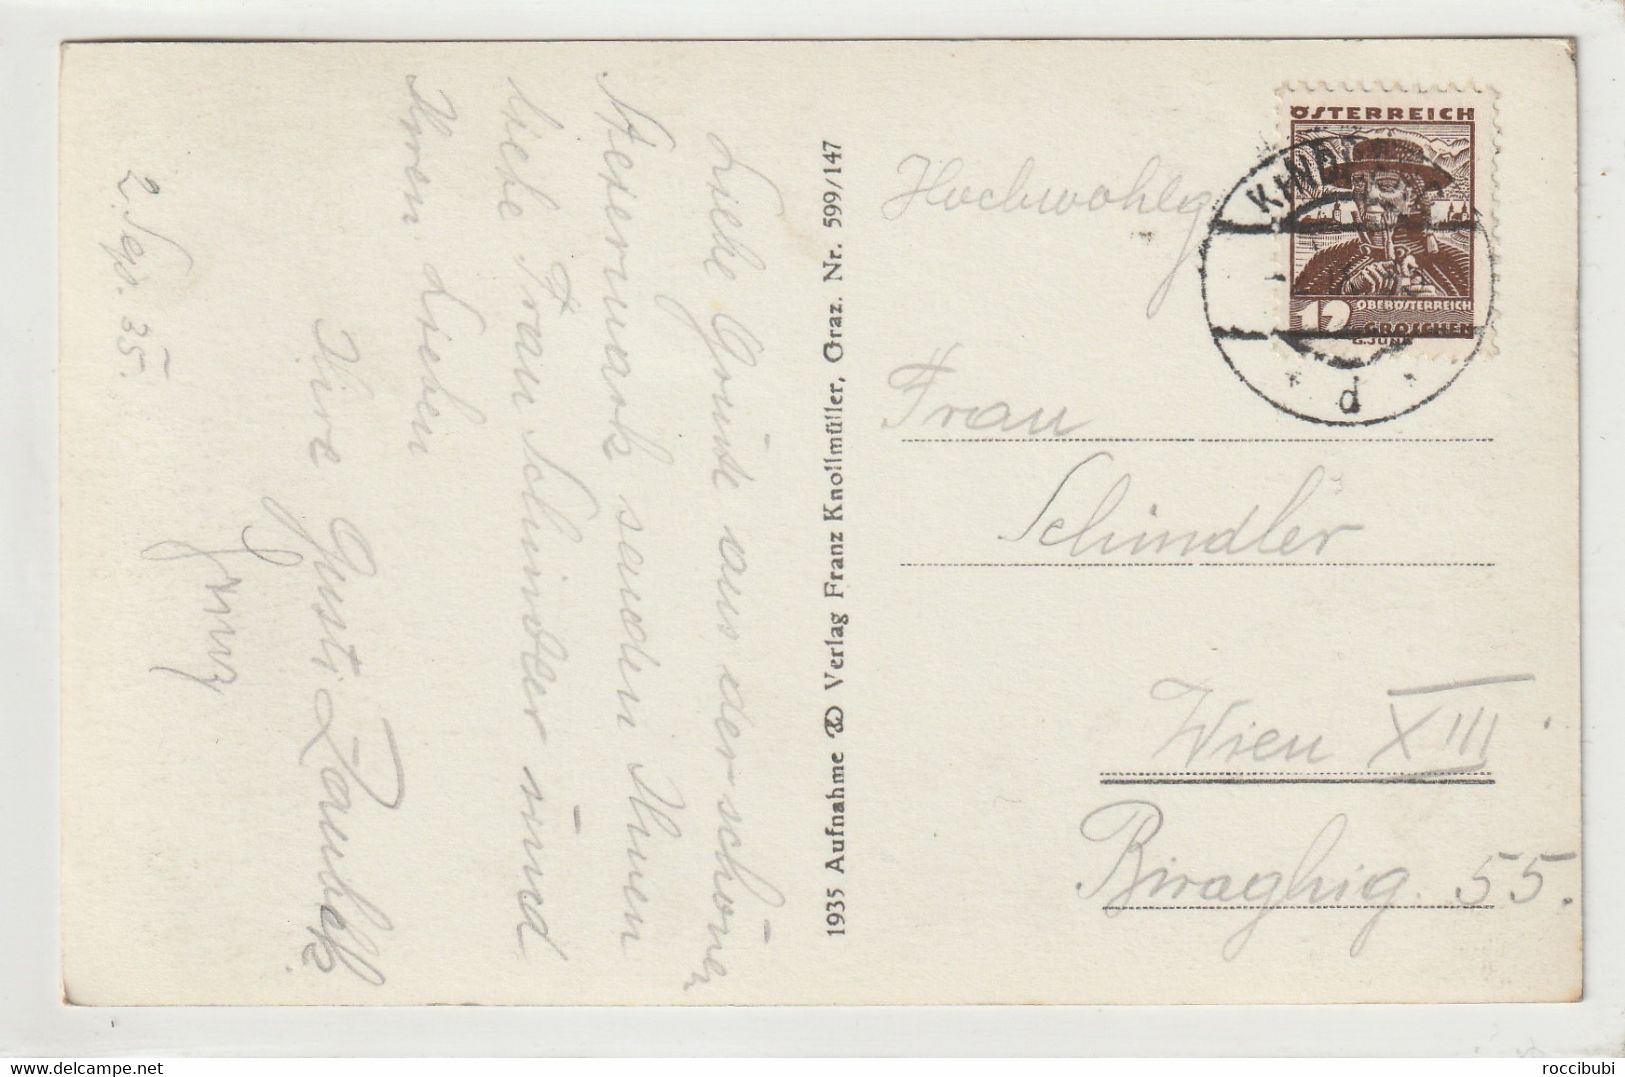 2. Sept. 35.
Liebe Grüsse aus der schönen
Steiermark senden Ihnen
liebe Frau Schindler und
Ihren Lieben
Ihre Gusti
1935 Aufnahme Verlag Franz Knollmüller, Graz. Nr. 599/147
Hochwohlg
ÖSTERREICH
KINDB
OBERÖSTERREICH
12 GROSCHEN
G.JUNK
d
Frau
Schindler
Wien XIII
Biraghig. 55.
delcampe.net
roccibubi